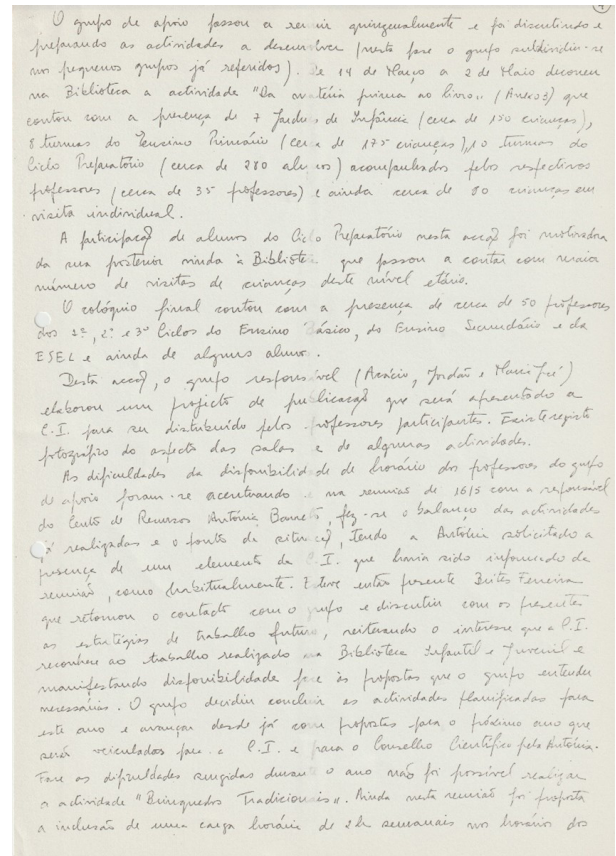 4
O grupo de apoio passou a reunir quinzenalmente e foi discutindo e
preparando as actividades a desenvolver (nesta fase o grupo subdividiu-se
nos pequenos grupos já referidos). De 14 de Março a 2 de Maio decorreu
na Biblioteca a actividade "Da matéria prima ao livro" (Anexo 3) que
contou com a presença de 7 Jardins de Infância (cerca de 150 crianças),
8 turmas do Ensino Primário (cerca de 175 crianças), 10 turmas do
Ciclo Preparatório (cerca de 280 alunos) acompanhados pelos respectivos
professores (cerca de 35 professores) e ainda cerca de 80 crianças em
visita individual.
A participação de alunos do Ciclo Preparatório nesta acção foi motivadora
da sua posterior vinda à Biblioteca que passou a contar com maior
número de visitas de crianças deste nível etário.
O colóquio final contou com a presença de cerca de 50 professores
dos 1º, 2º e 3º Ciclos do Ensino Básico, do Ensino Secundário e da
ESEL e ainda de alguns alunos.
Desta acção, o grupo responsável (Acácio, Jordão e Maria José)
elaborou um projecto de publicação que será apresentado a
C.I. para ser distribuído pelos professores participantes. Existe registo
fotográfico do aspecto das salas e de algumas actividades.
As dificuldades da disponibilidade de horário dos professores do grupo
de apoio foram-se acentuando e na reunião de 16/5 com a responsável
do Centro de Recursos António Barreto, fez-se o balanço das actividades
já realizadas e o ponto da situação, tendo a Antónia solicitado a
presença de um elemento da C.I. que havia sido informada da
reunião, como habitualmente. Esteve então presente Brites Ferreira
que retomou o contacto com o grupo e discutiu com os presentes
as estratégias de trabalho futuro, reiterando o interesse que a C.I.
reconhece ao trabalho realizado na Biblioteca Infantil e Juvenil e
manifestando disponibilidade face às propostas que o grupo entender
necessárias. O grupo decidiu concluir as actividades planificadas para
este ano e avançar desde já com propostas para o próximo ano que
será veiculadas para a C.I. e para o Conselho Científico pela Antónia.
Face as dificuldades surgidas durante o ano não foi possível realizar
a actividade "Brinquedos Tradicionais". Ainda nesta reunião foi proposta
a inclusão de uma carga horária de 2h semanais nos horários dos